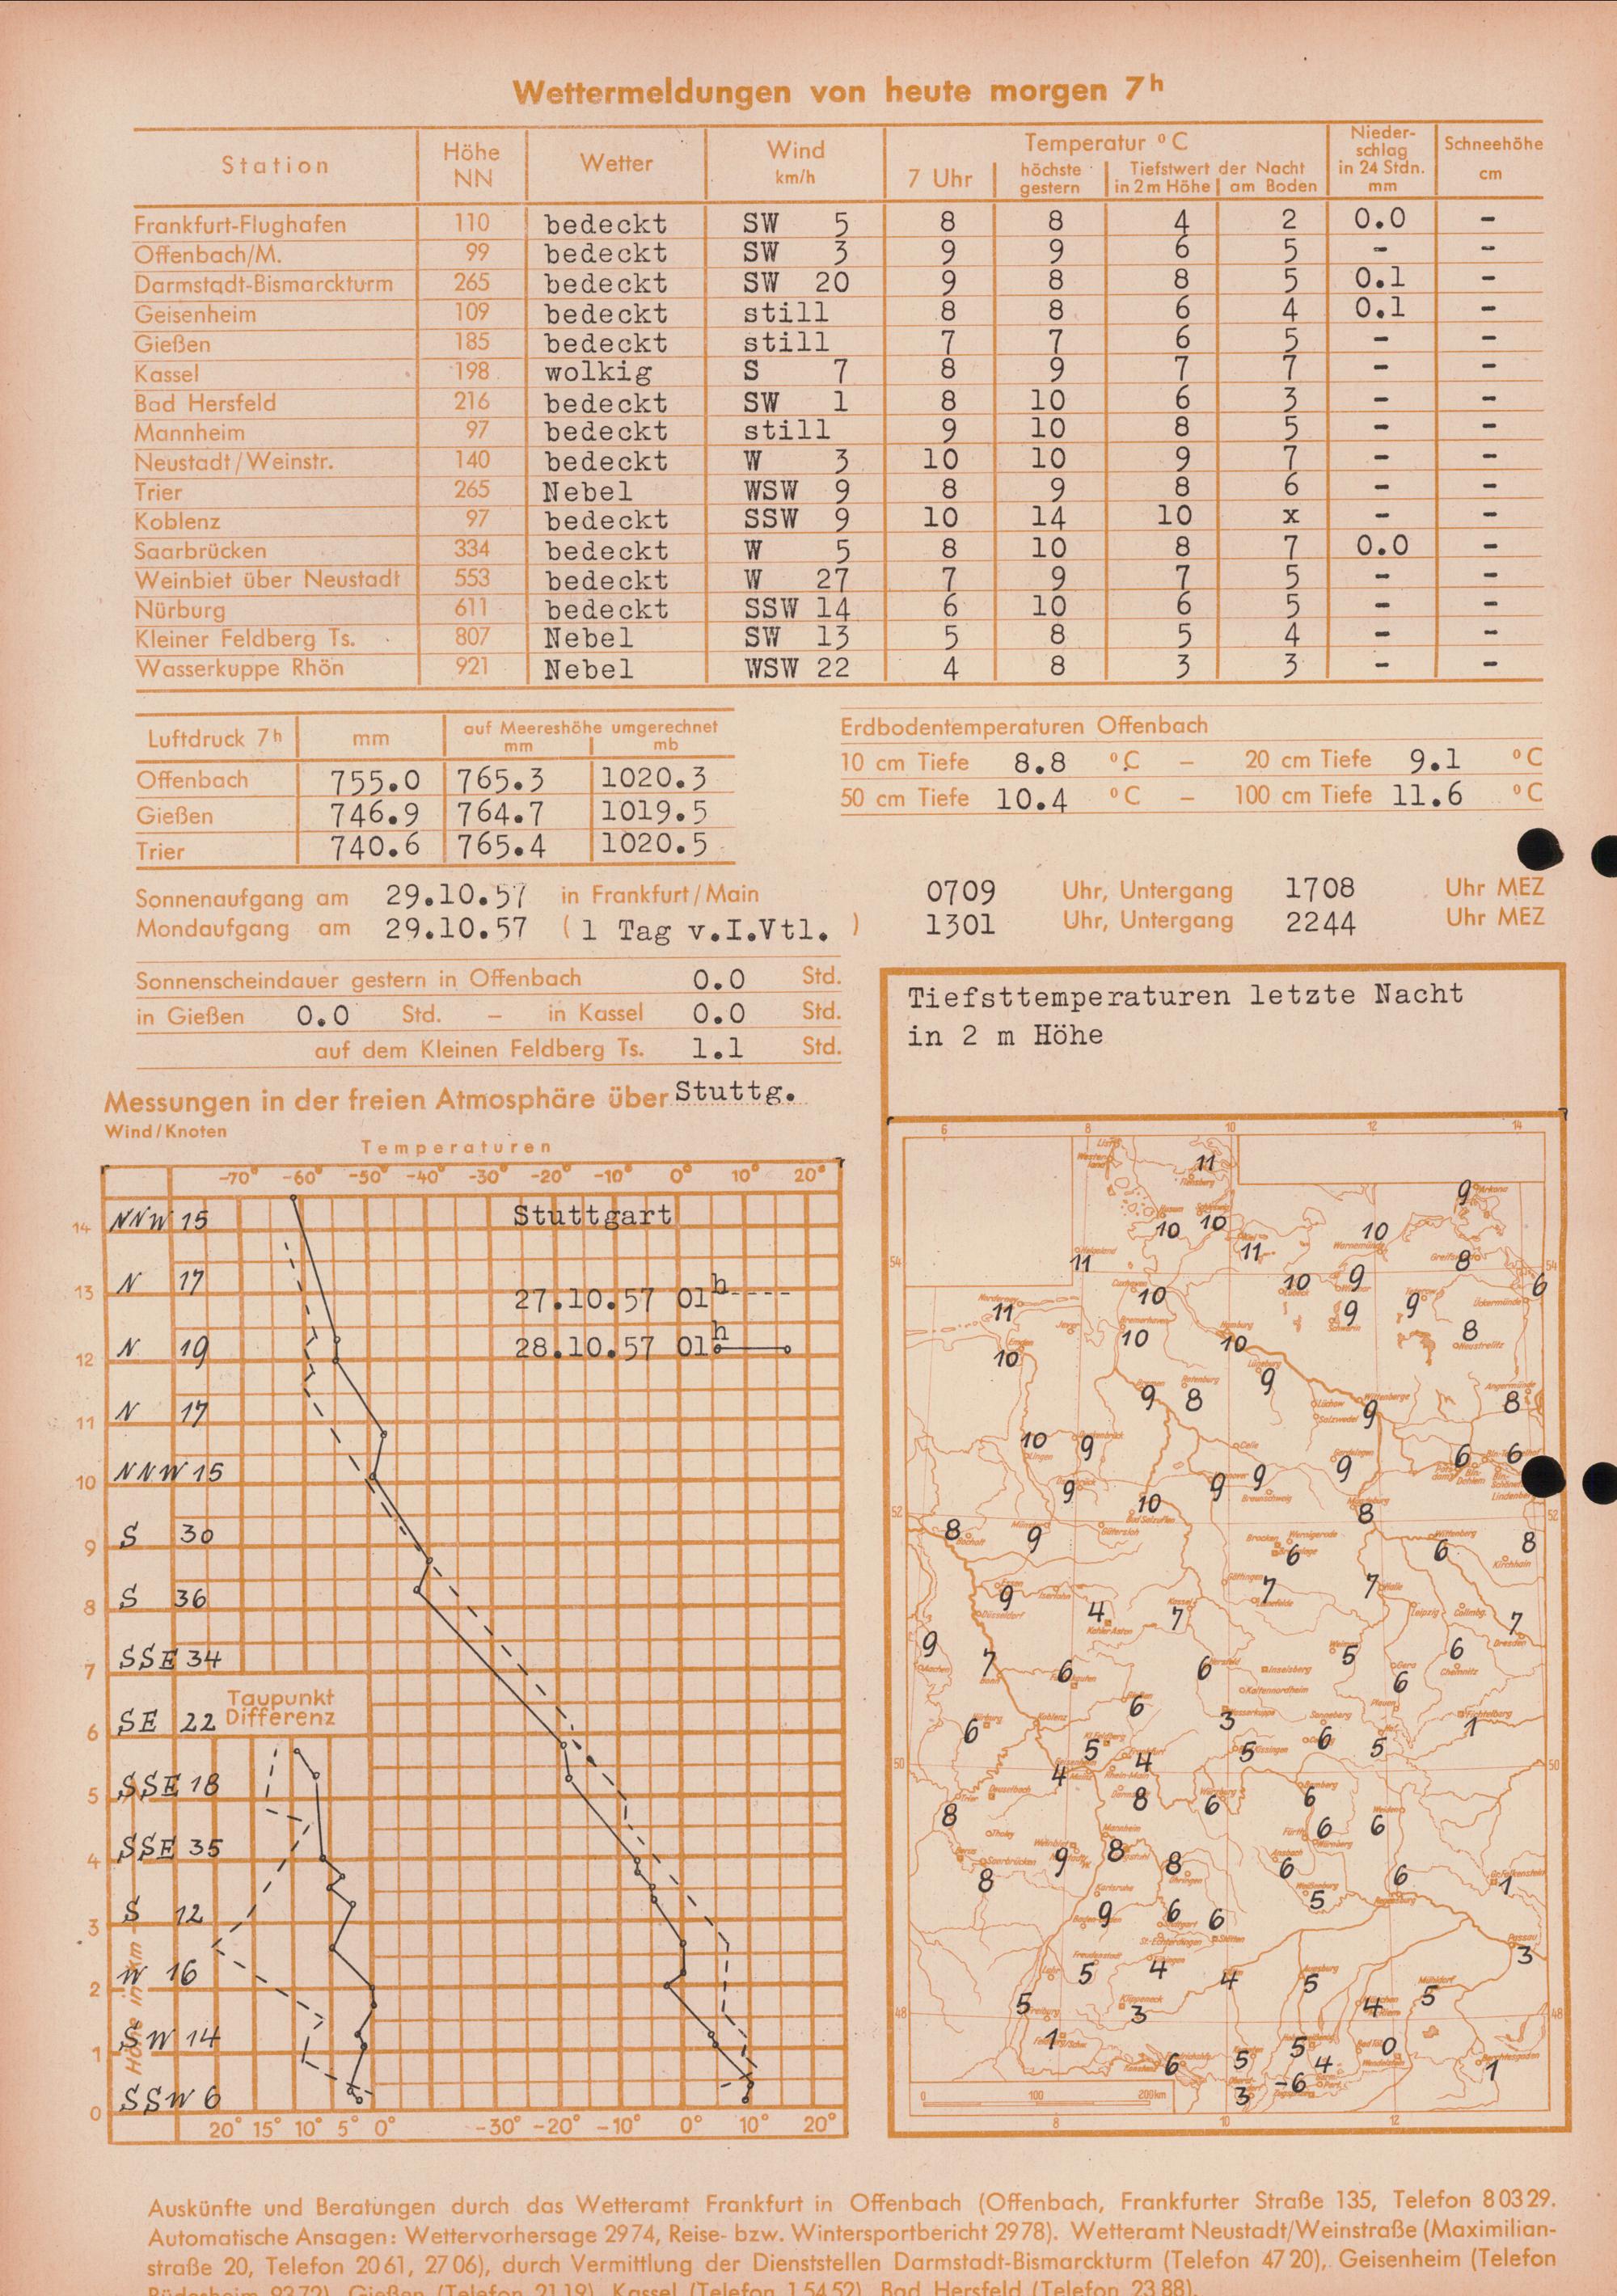 Wettermeldungen von heute morgen 7h
Station Höhe NN Wetter Wind km/h Temperatur °C Nieder-schlag in 24 Stdn. mm Schneehöhe cm
7 Uhr höchste gestern Tiefstwert der Nacht in 2 m Höhe am Boden
Frankfurt-Flughafen 110 bedeckt SW 5 8 8 4 2 0.0 -
Offenbach/M. 99 bedeckt SW 3 9 9 6 5 - -
Darmstadt-Bismarckturm 265 bedeckt SW 20 9 8 8 5 0.1 -
Geisenheim 109 bedeckt still 8 8 6 4 0.1 -
Gießen 185 bedeckt still 7 7 6 5 - -
Kassel 198 wolkig S 7 8 9 7 7 - -
Bad Hersfeld 216 bedeckt SW 1 8 10 6 3 - -
Mannheim 97 bedeckt still 9 10 8 5 - -
Neustadt/Weinstr. 140 bedeckt W 3 10 10 9 7 - -
Trier 265 Nebel WSW 9 8 9 8 6 - -
Koblenz 97 bedeckt SSW 9 10 14 10 x - -
Saarbrücken 334 bedeckt W 5 8 10 8 7 0.0 -
Weinbiet über Neustadt 553 bedeckt W 27 7 9 7 5 - -
Nürburg 611 bedeckt SSW 14 6 10 6 5 - -
Kleiner Feldberg Ts. 807 Nebel SW 13 5 8 5 4 - -
Wasserkuppe Rhön 921 Nebel WSW 22 4 8 3 3 - -
Luftdruck 7h mm auf Meereshöhe umgerechnet mm mb
Offenbach 755.0 765.3 1020.3
Gießen 746.9 764.7 1019.5
Trier 740.6 765.4 1020.5
Erdbodentemperaturen Offenbach
10 cm Tiefe 8.8 °C – 20 cm Tiefe 9.1 °C
50 cm Tiefe 10.4 °C – 100 cm Tiefe 11.6 °C
Sonnenaufgang am 29.10.57 in Frankfurt/Main 0709 Uhr, Untergang 1708 Uhr MEZ
Mondaufgang am 29.10.57 (1 Tag v.I.Vtl. ) 1301 Uhr, Untergang 2244 Uhr MEZ
Sonnenscheindauer gestern in Offenbach 0.0 Std.
in Gießen 0.0 Std. – in Kassel 0.0 Std.
auf dem Kleinen Feldberg Ts. 1.1 Std.
Messungen in der freien Atmosphäre über Stuttg.
Wind/Knoten
Temperaturen
-70° -60° -50° -40° -30° -20° -10° 0° 10° 20°
14 NNW 15
Stuttgart
13 N 17
27.10.57 01h ----
12 N 19
28.10.57 01h
11 N 17
10 NNW 15
9 S 30
8 S 36
7 SSE 34
Taupunkt
6 SE 22 Differenz
5 SSE 18
4 SSE 35
3 S 12
2 W 16
1 SW 14
0 SSW 6
Höhe in km
20° 15° 10° 5° 0° -30° -20° -10° 0° 10° 20°
Tiefsttemperaturen letzte Nacht
in 2 m Höhe
6 8 10 12 14
11
9
10 10 10
11 11 8
54 54
10 9 6
10
11 9 9
10 10 8
10
9
9 8 9 8
10 9 6 6
9
9 9 9
10 8
52 52
8 9 6 6 8
9 7 7
4 7 7
9 5 6
7 6 6 6
6 3 1
6 5 4 5 6 5
50 50
4
8 8 6 6
6 6
9 8 8 6 6
8 5 1
9 6 6
3
5 4 4 5
5 3 4 5
48 48
1 6 5 5 4 0 1
3 -6
0 100 200km
8 10 12
Auskünfte und Beratungen durch das Wetteramt Frankfurt in Offenbach (Offenbach, Frankfurter Straße 135, Telefon 8 03 29.
Automatische Ansagen: Wettervorhersage 29 74, Reise- bzw. Wintersportbericht 29 78). Wetteramt Neustadt/Weinstraße (Maximilian-
straße 20, Telefon 20 61, 27 06), durch Vermittlung der Dienststellen Darmstadt-Bismarckturm (Telefon 47 20), Geisenheim (Telefon
Rüdesheim 93 72), Gießen (Telefon 21 19), Kassel (Telefon 1 54 52), Bad Hersfeld (Telefon 23 88).